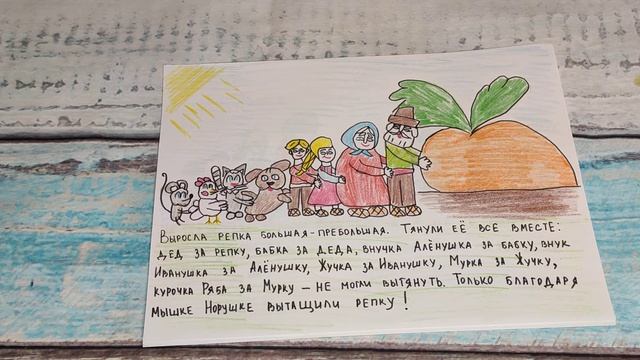 Выросла репка большая-пребольшая. Тянули её все вместе:
дед за репку, бабка за деда, внучка Алёнушка за бабку, внук
Иванушка за Алёнушку, Жучка за Иванушку, Мурка за Жучку,
курочка Ряба за Мурку – не могли вытянуть. Только благодаря
мышке Норушке вытащили репку!